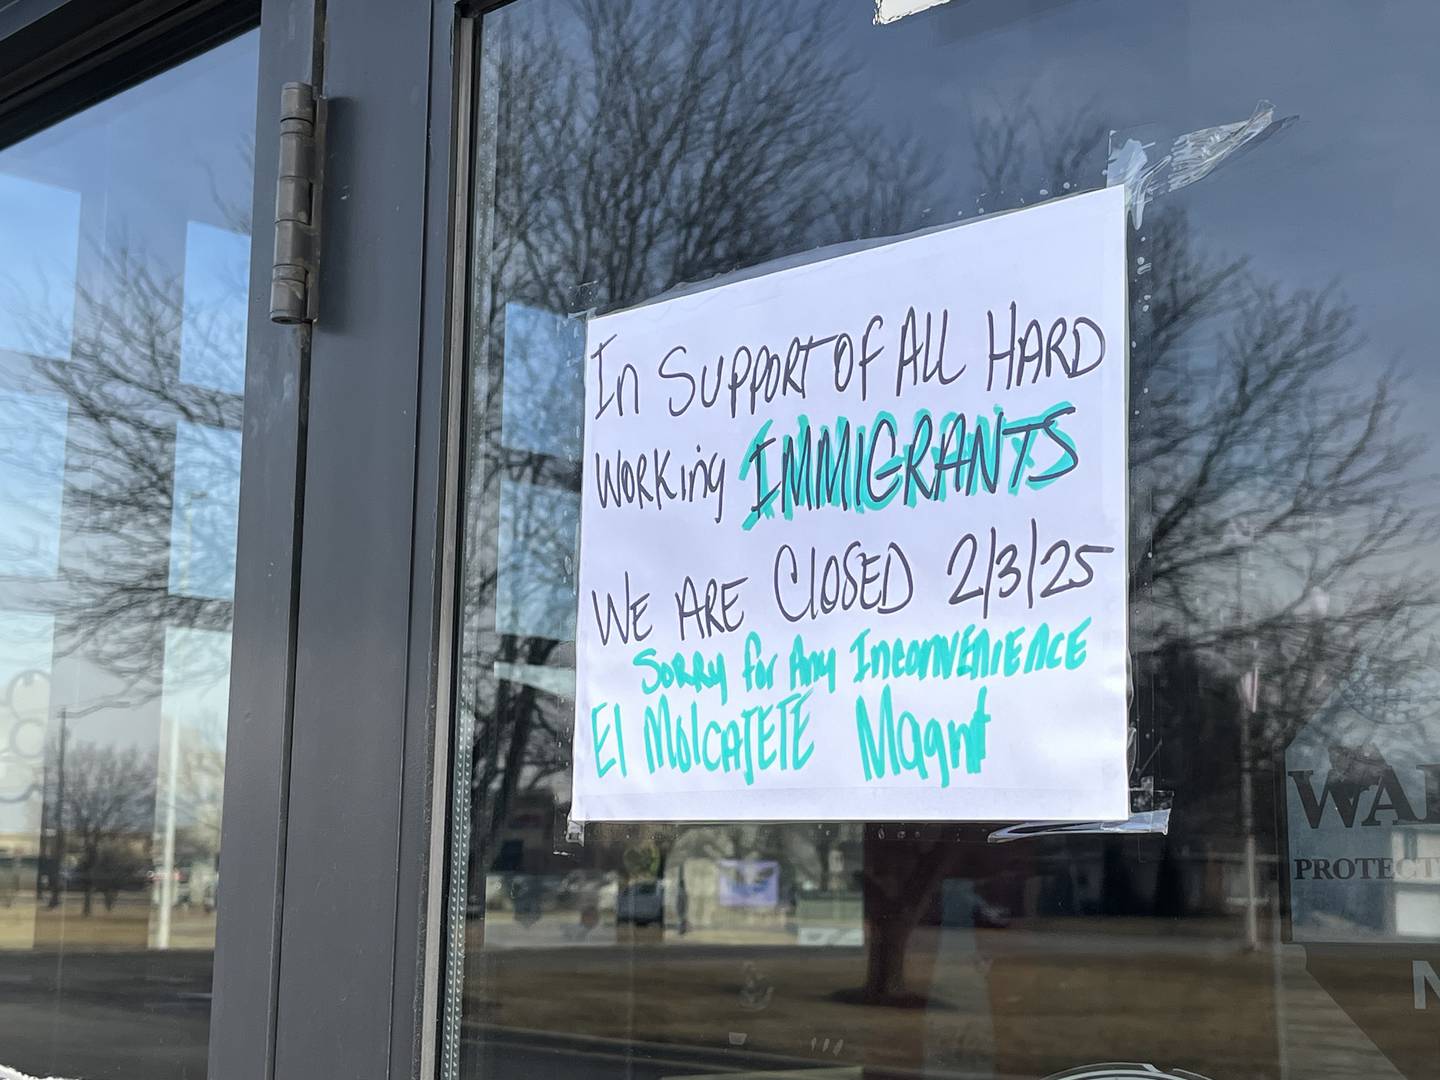 In Support of All Hard
Working Immigrants
We Are Closed 2/3/25
Sorry for Any Inconvenience
El Molcatete Magnt
WA
PROTECT
N